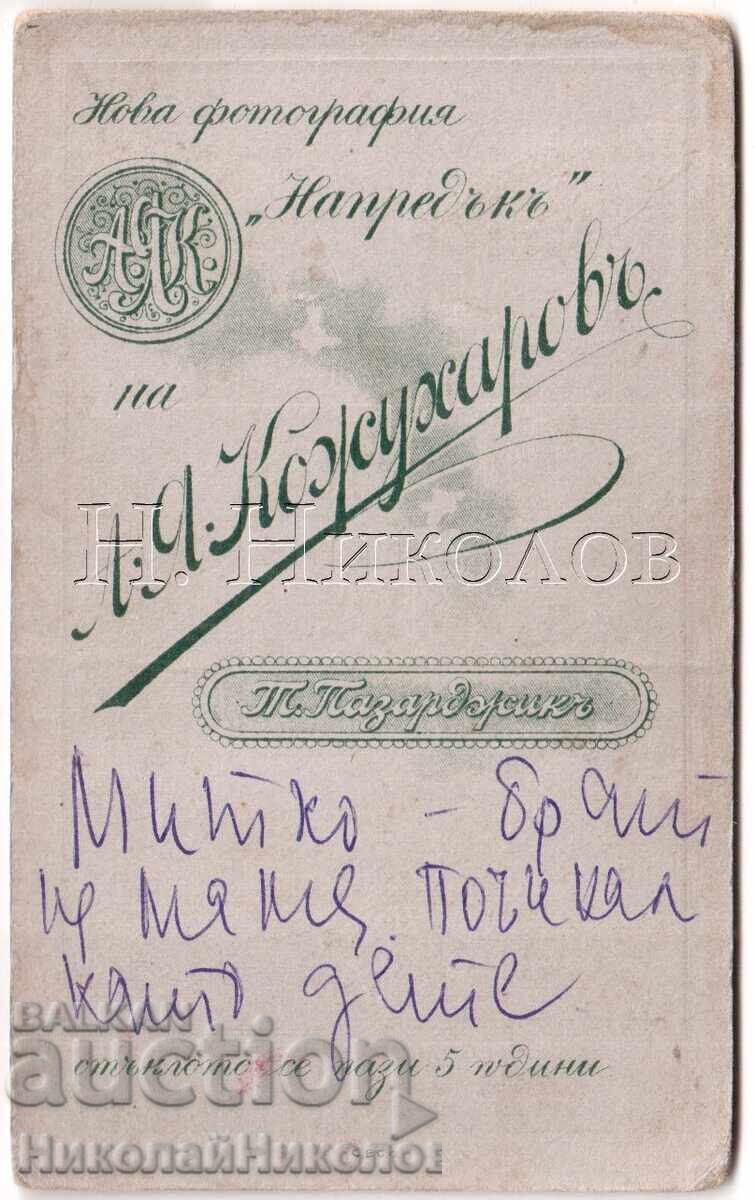 Нова фотография
„Напредъкъ"
АЯК
на
А.Я.Кожухаровъ
Н. Николов
Т. Пазарджикъ
Митко – брат
на мама. почикал
като дете
стъклото се пази 5 години
BALKAN
auction
НиколайНиколов